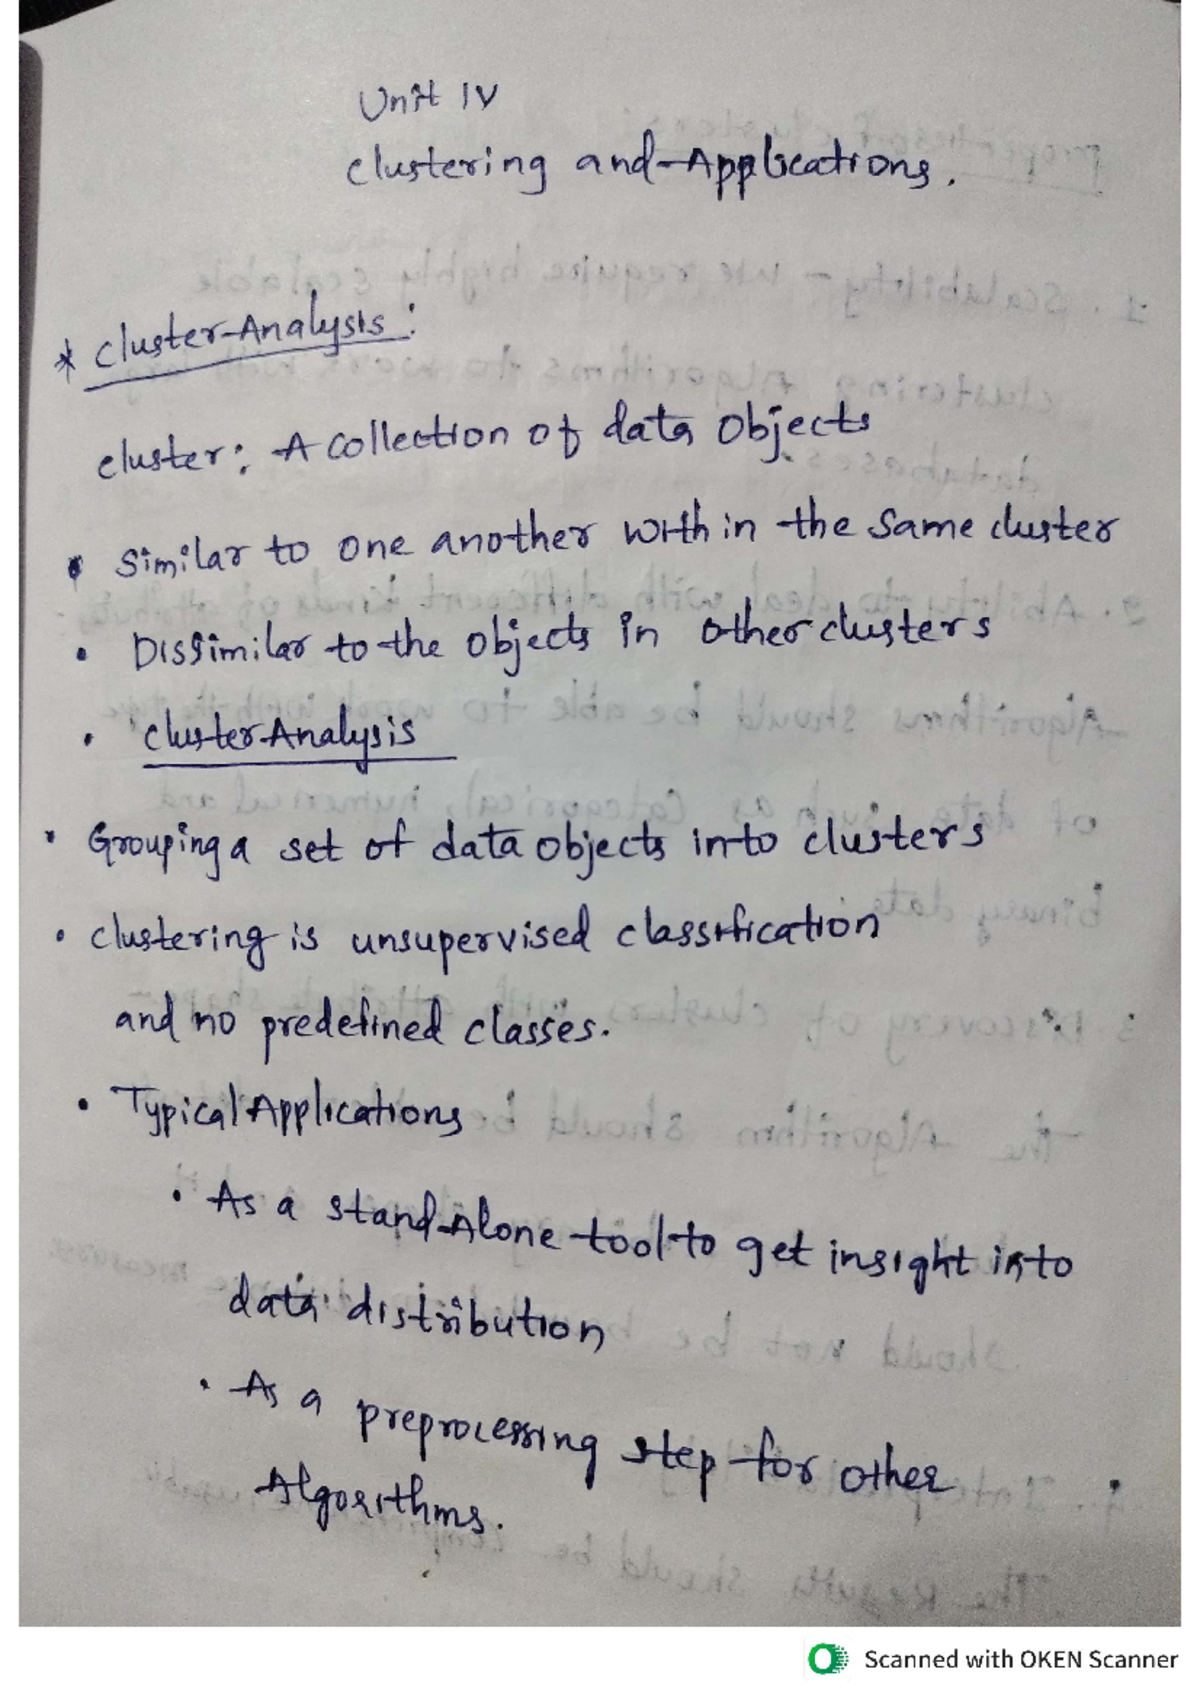 Unit IV
Clustering and Applications.
* Cluster Analysis:
cluster: A collection of data objects
• Similar to one another within the same cluster
• Dissimilar to the objects in other clusters
• Cluster Analysis
• Grouping a set of data objects into clusters
• clustering is unsupervised classification
and no predefined classes.
• Typical Applications
• As a stand-Alone tool to get insight into
data distribution
• As a preprocessing step for other
Algorithms.
Scanned with OKEN Scanner